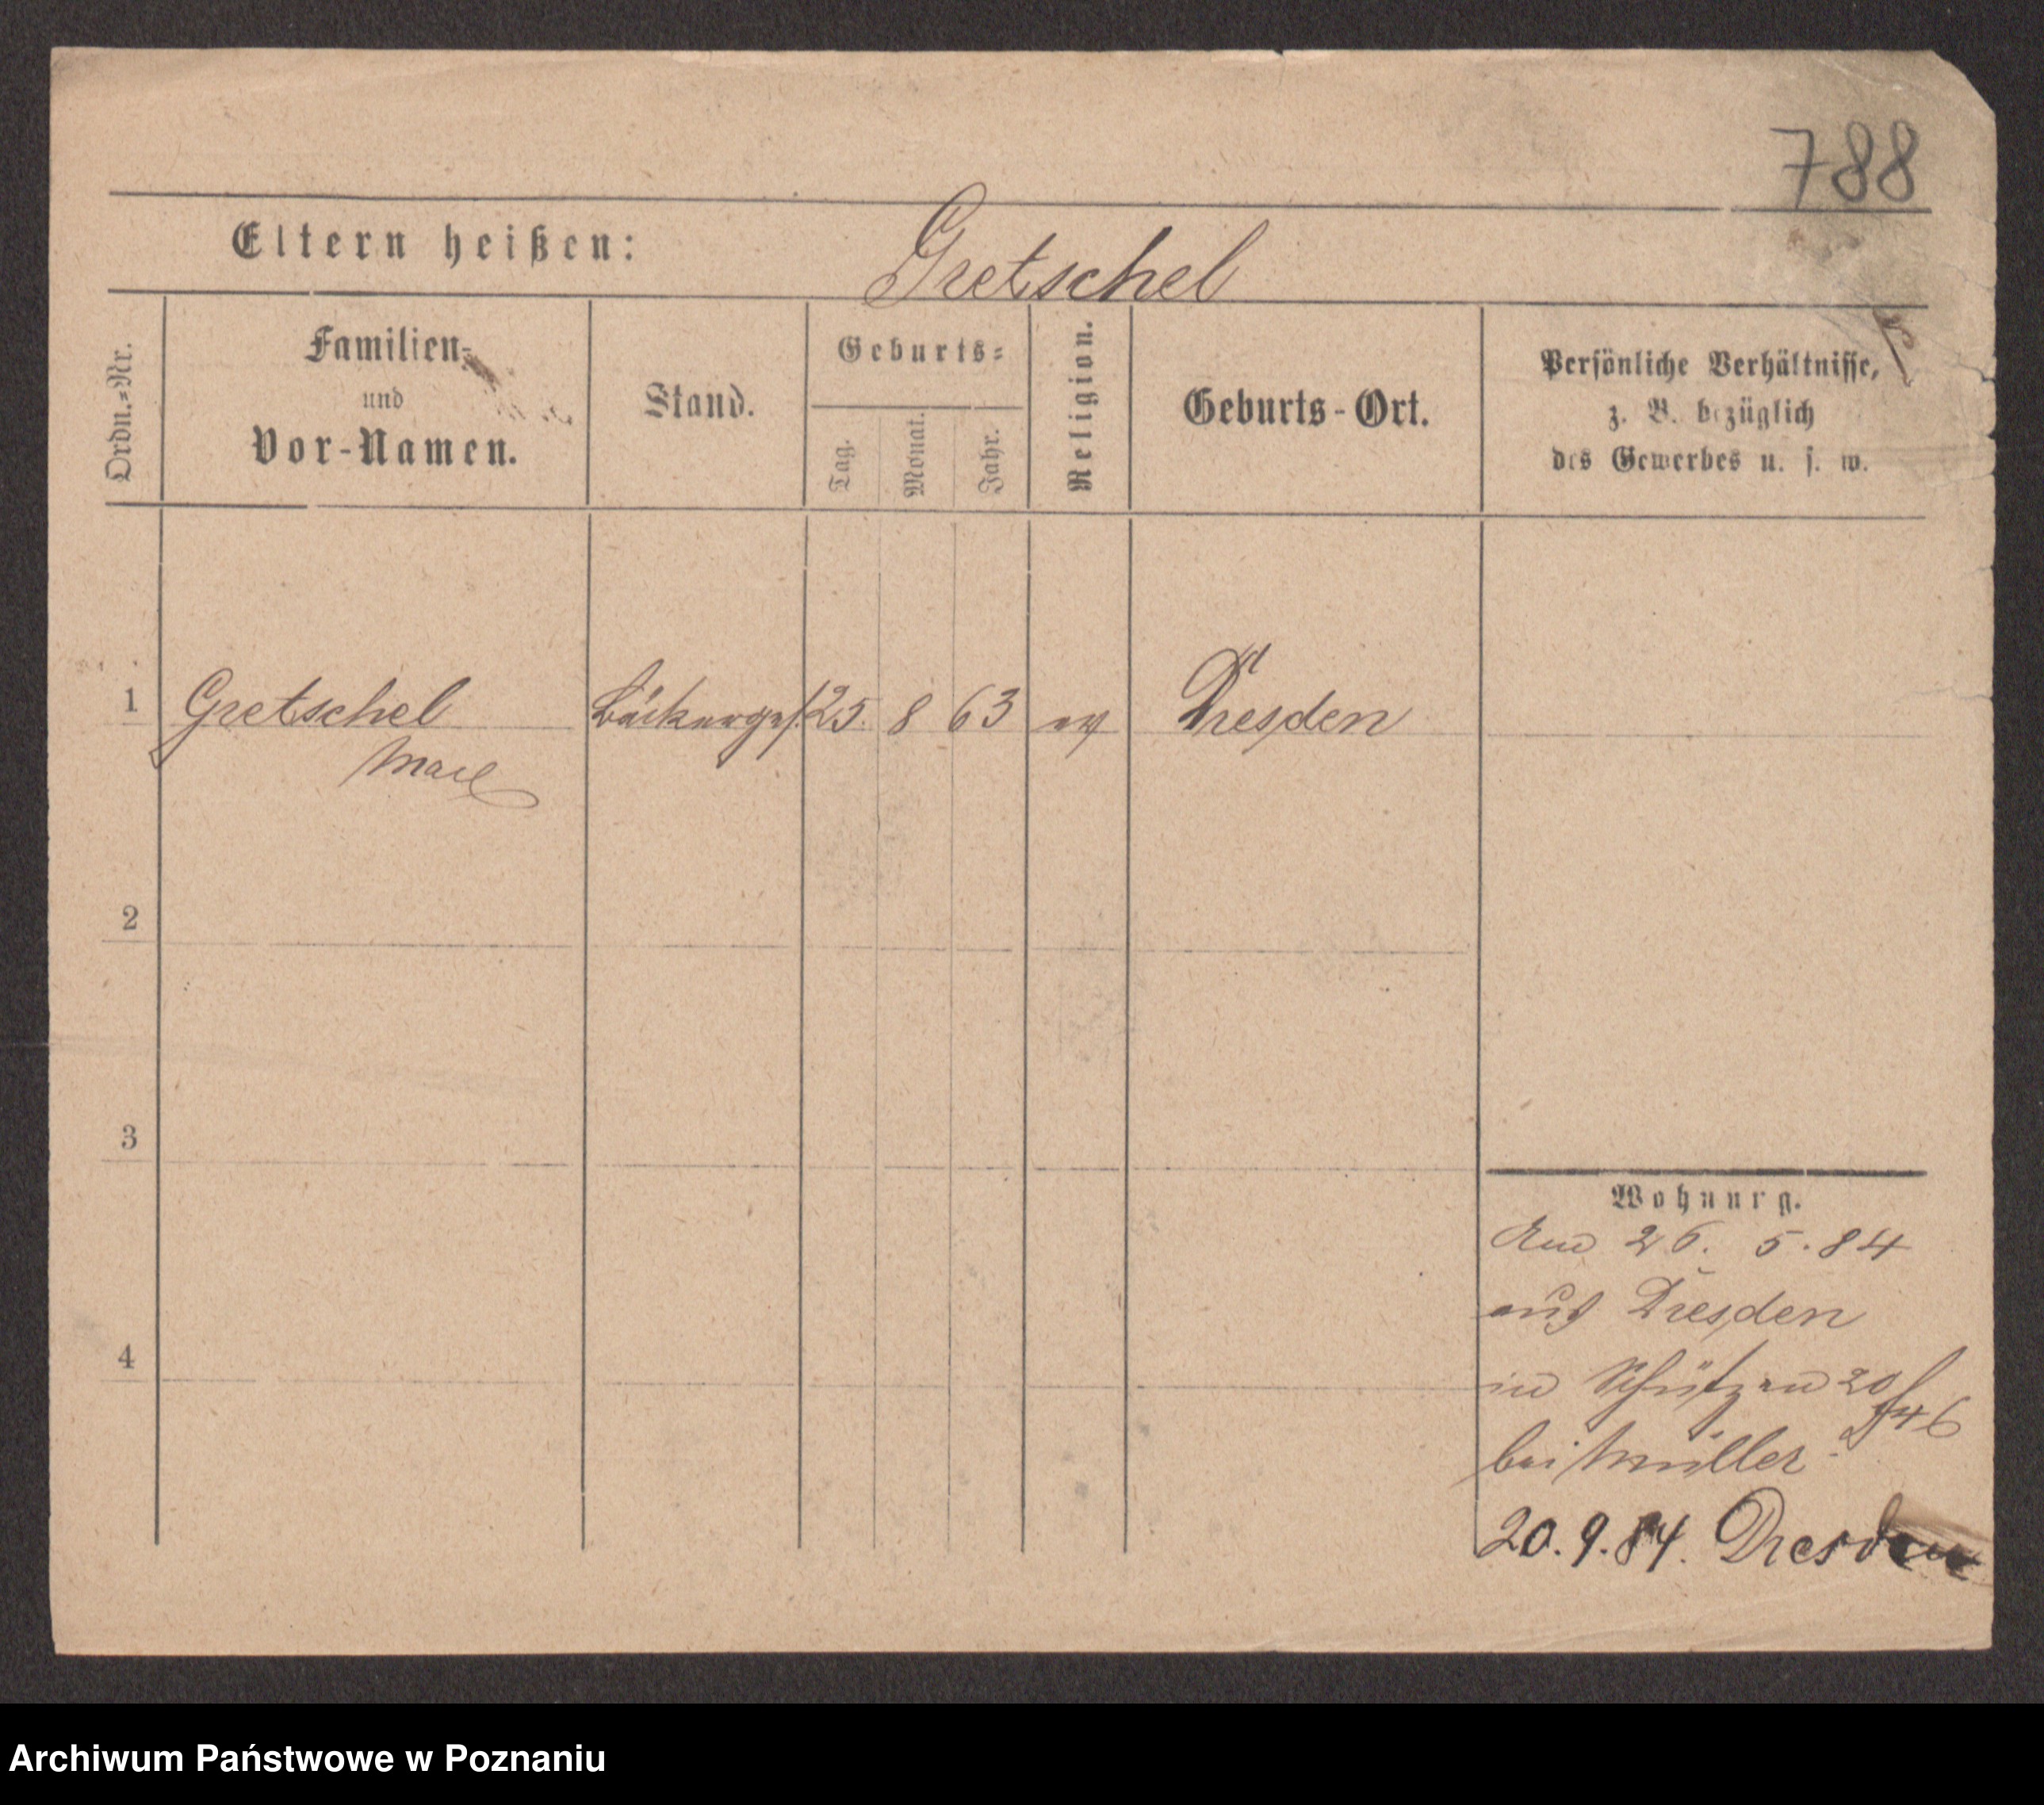 788
Eltern heißen: Gretschel
Ordn.-Nr.
Familien-
und
Vor-Namen.
Stand.
Geburts-
Tag.
Monat.
Jahr.
Religion.
Geburts-Ort.
Persönliche Verhältnisse,
z. B. bezüglich
des Gewerbes u. s. w.
1 Gretschel Bäckerges. 25. 8 63 ev Dresden
Max
2
3
4
Wohnung.
26. 5. 84
aus Dresden
in Schützen 20
bei Müller
20. 9. 84. Dresden
Archiwum Państwowe w Poznaniu